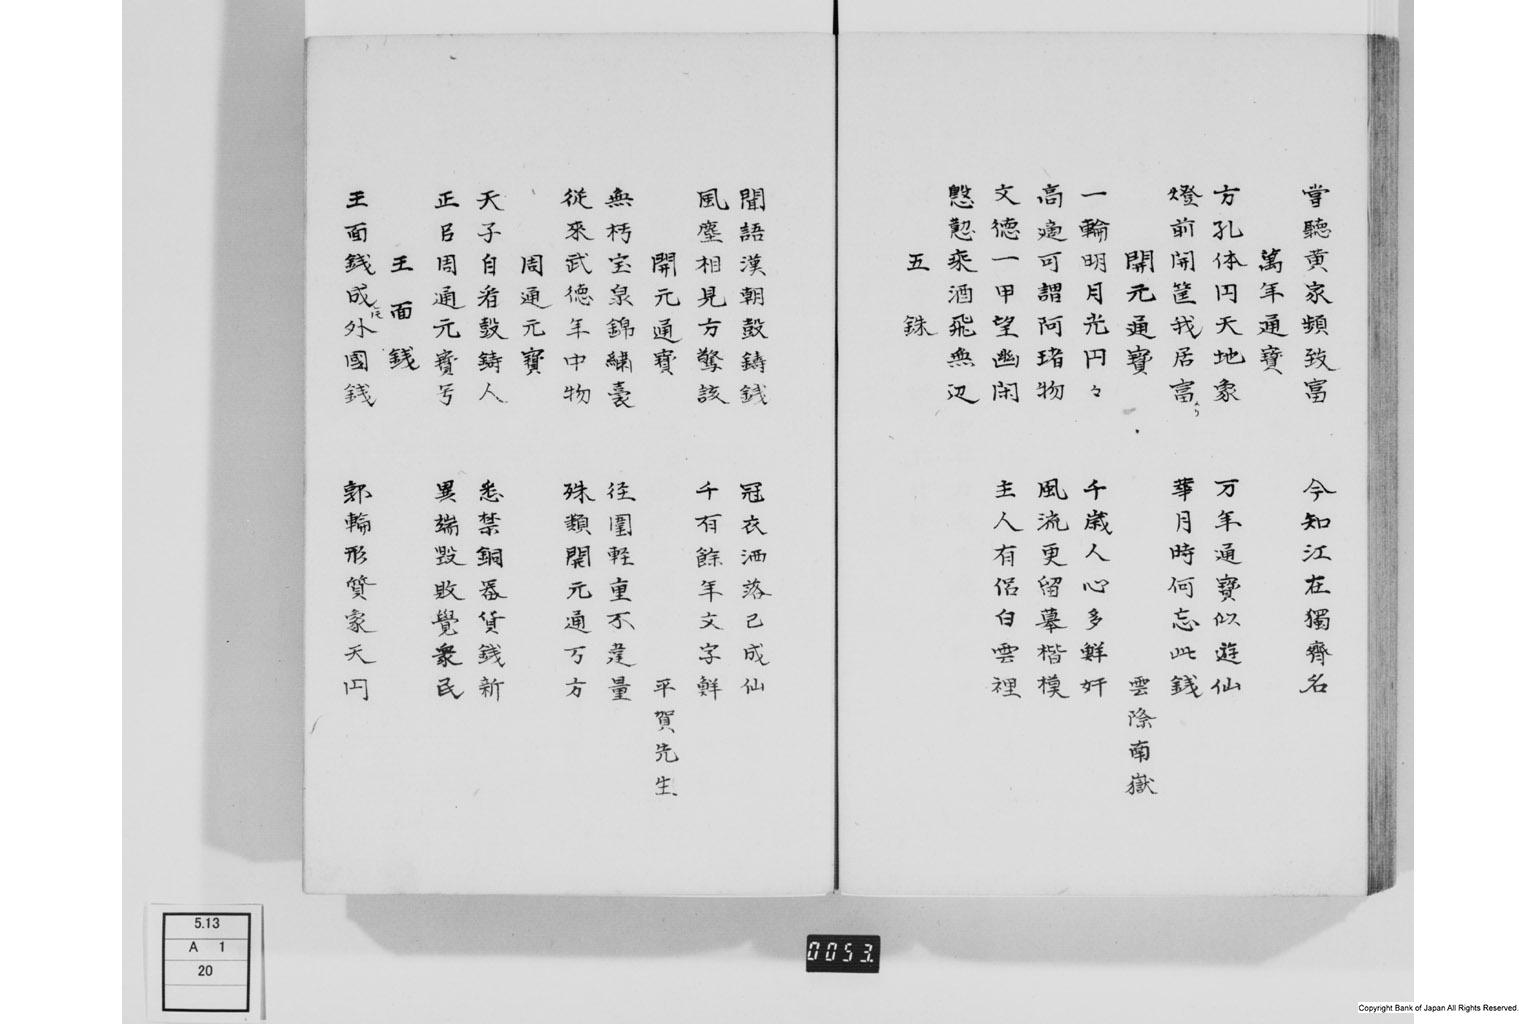 嘗聽黄家頻致富　今知江在獨齊名
萬年通寳
方孔体円天地象　万年通寳似遊仙
燈前開筐我居富　華月時何忘此銭
開元通寳　雲際南嶽
一輪明月光円々　千歳人心多鮮奸
高邈可謂阿堵物　風流更留摹楷模
文德一甲望幽閑　主人有侶白雲裡
慇懃乘酒飛無辺
五銖
聞語漢朝鼓鋳銭　冠衣洒落己成仙
風塵相見方驚該　千有餘年文字鮮
開元通寳　平賀先生
無杇宝泉錦繍嚢　径圍軽重不違量
従來武徳年中物　殊類開元通万方
周通元寶
天子自者鼓鋳人　悉禁銅器貨銭新
正吕周通元寳号　異端毀敗覺衆民
王面銭
王面銭成外國銭　郭輪形質象天円
5.13
A 1
20
0053.
Copyright Bank of Japan All Rights Reserved.